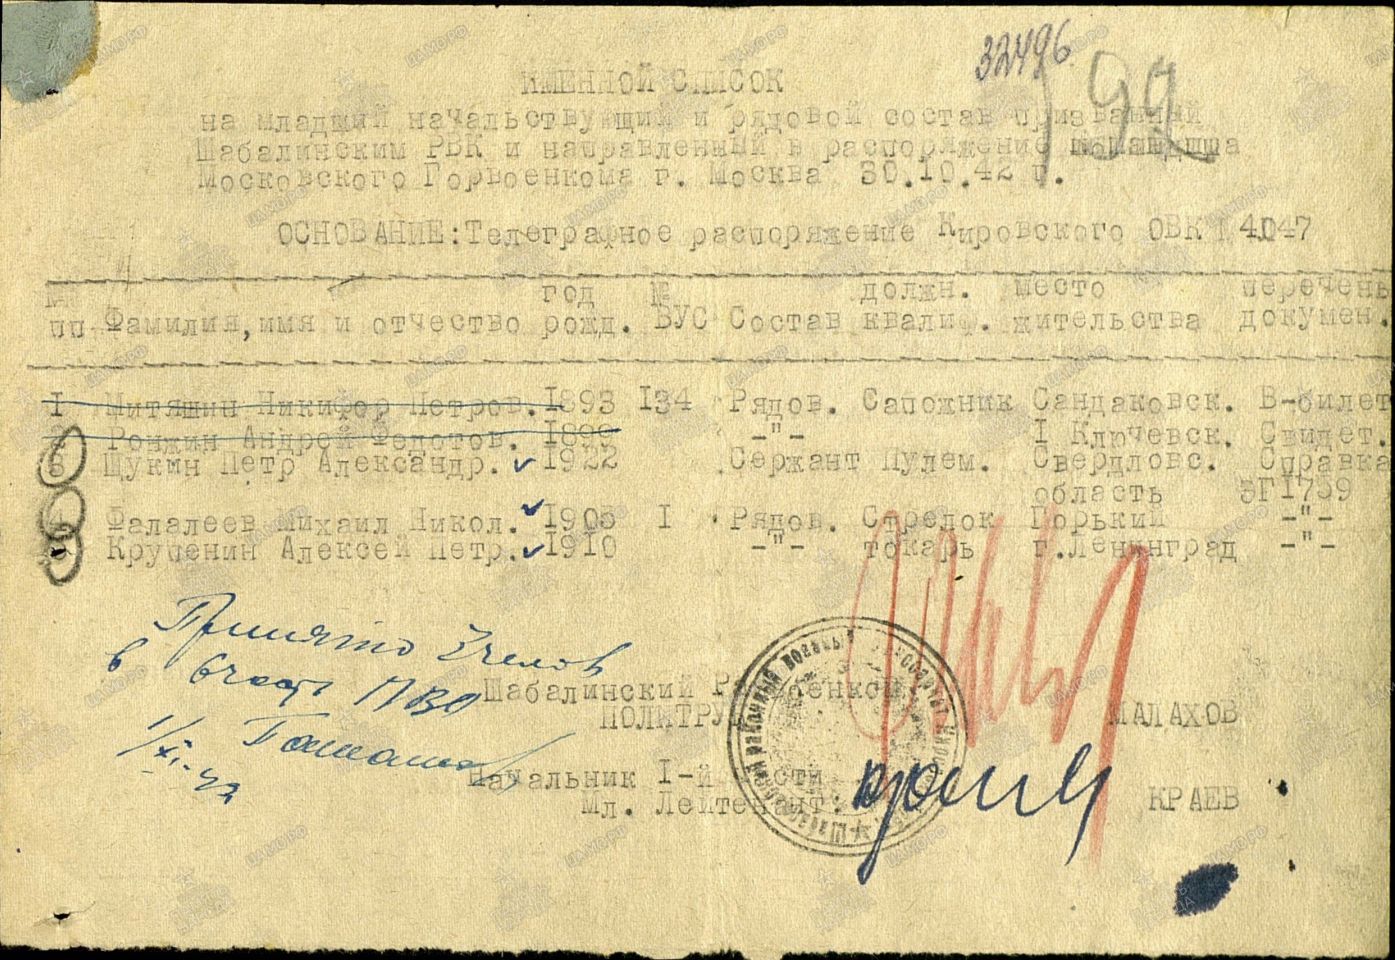 32496
192
ИМЕННОЙ СПИСОК
на младший начальствующий и рядовой состав призванный
Шабалинским РВК и направленный в распоряжение
Московского Горвоенкома г. Москва 30.10.42 г.
ОСНОВАНИЕ: Телеграфное распоряжение Кировского ОВК 4047
№ год № должн. место перечень
пп Фамилия, имя и отчество рожд. ВУС Состав квалиф. жительства докумен.
1 Митяшин Никифор Петров. 1893 134 Рядов. Сапожник Сандаковск. В-билет
2 Ронжин Андрей Федотов. 1899 -"- I Ключевск. Свидет.
3 Щукин Петр Александр. 1922 Сержант Пулем. Свердловс. Справка
область 3Г1759
4 Фалалеев Михаил Никол. 1905 I Рядов. Стрелок Горький -"-
5 Крупенин Алексей Петр. 1910 -"- токарь г.Ленинград -"-
Принято 3 челов
в 6 часть ПВО
1/XI-42
Шабалинский Райвоенком
ПОЛИТРУК МАЛАХОВ
Начальник I-й части
Мл. Лейтенант: КРАЕВ